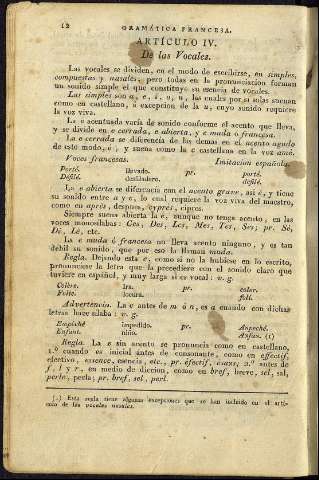 12
GRAMÁTICA FRANCESA.
ARTÍCULO IV.
De las Vocales.
Las vocales se dividen, en el modo de escribirse, en simples,
compuestas y nasales; pero todas en la pronunciacion forman
un sonido simple el que constituye su esencia de vocales.
Las simples son a, e, i, o, u, las cuales por sí solas suenan
como en castellano, á excepcion de la u, cuyo sonido requiere
la voz viva.
La e acentuada varía de sonido conforme el acento que lleva,
y se divide en e cerrada, e abierta, y e muda ó francesa.
La e cerrada se diferencia de las demas en el acento agudo
de este modo, é; y suena como la e castellana en la voz amé.
Voces francesas. Imitacion española.
Porté. llevado. pr. porté.
Défilé. desfiladero. défilé.
La e abierta se diferencia con el acento grave, asi è, y tiene
su sonido entre a y e, lo cual requiere la voz viva del maestro,
como en après, despues, cyprès, cipres.
Siempre suena abierta la e, aunque no tenga acento, en las
voces monosílabas: Ces, Des, Les, Mes, Tes, Ses; pr. Sè,
Dè, Lè, etc.
La e muda ó francesa no lleva acento ninguno, y es tan
debil su sonido, que por eso la llaman muda.
Regla. Dejando esta e, como si no la hubiese en lo escrito,
pronunciese la letra que la precediere con el sonido claro que
tuviere en español, y muy larga si es vocal: v. g.
Colère. ira. pr. coler.
Folie. locura. folí.
Advertencia. La e antes de m ó n, es a cuando con dichas
letras hace sílaba: v. g.
Empêché impedido. pr. Anpeché.
Enfant. niño. Anfan. (1)
Regla. La e sin acento se pronuncia como en castellano,
1.º cuando es inicial antes de consonante, como en effectif,
efectivo, essence, esencia, etc., pr. éfectif, 2.º antes de
f, l y r, en medio de diccion, como en bref, breve, sel, sal,
perle, perla; pr. bref, sel, perl.
(1) Esta regla tiene algunas excepciones que se han incluido en el artí-
culo de las vocales nasales.